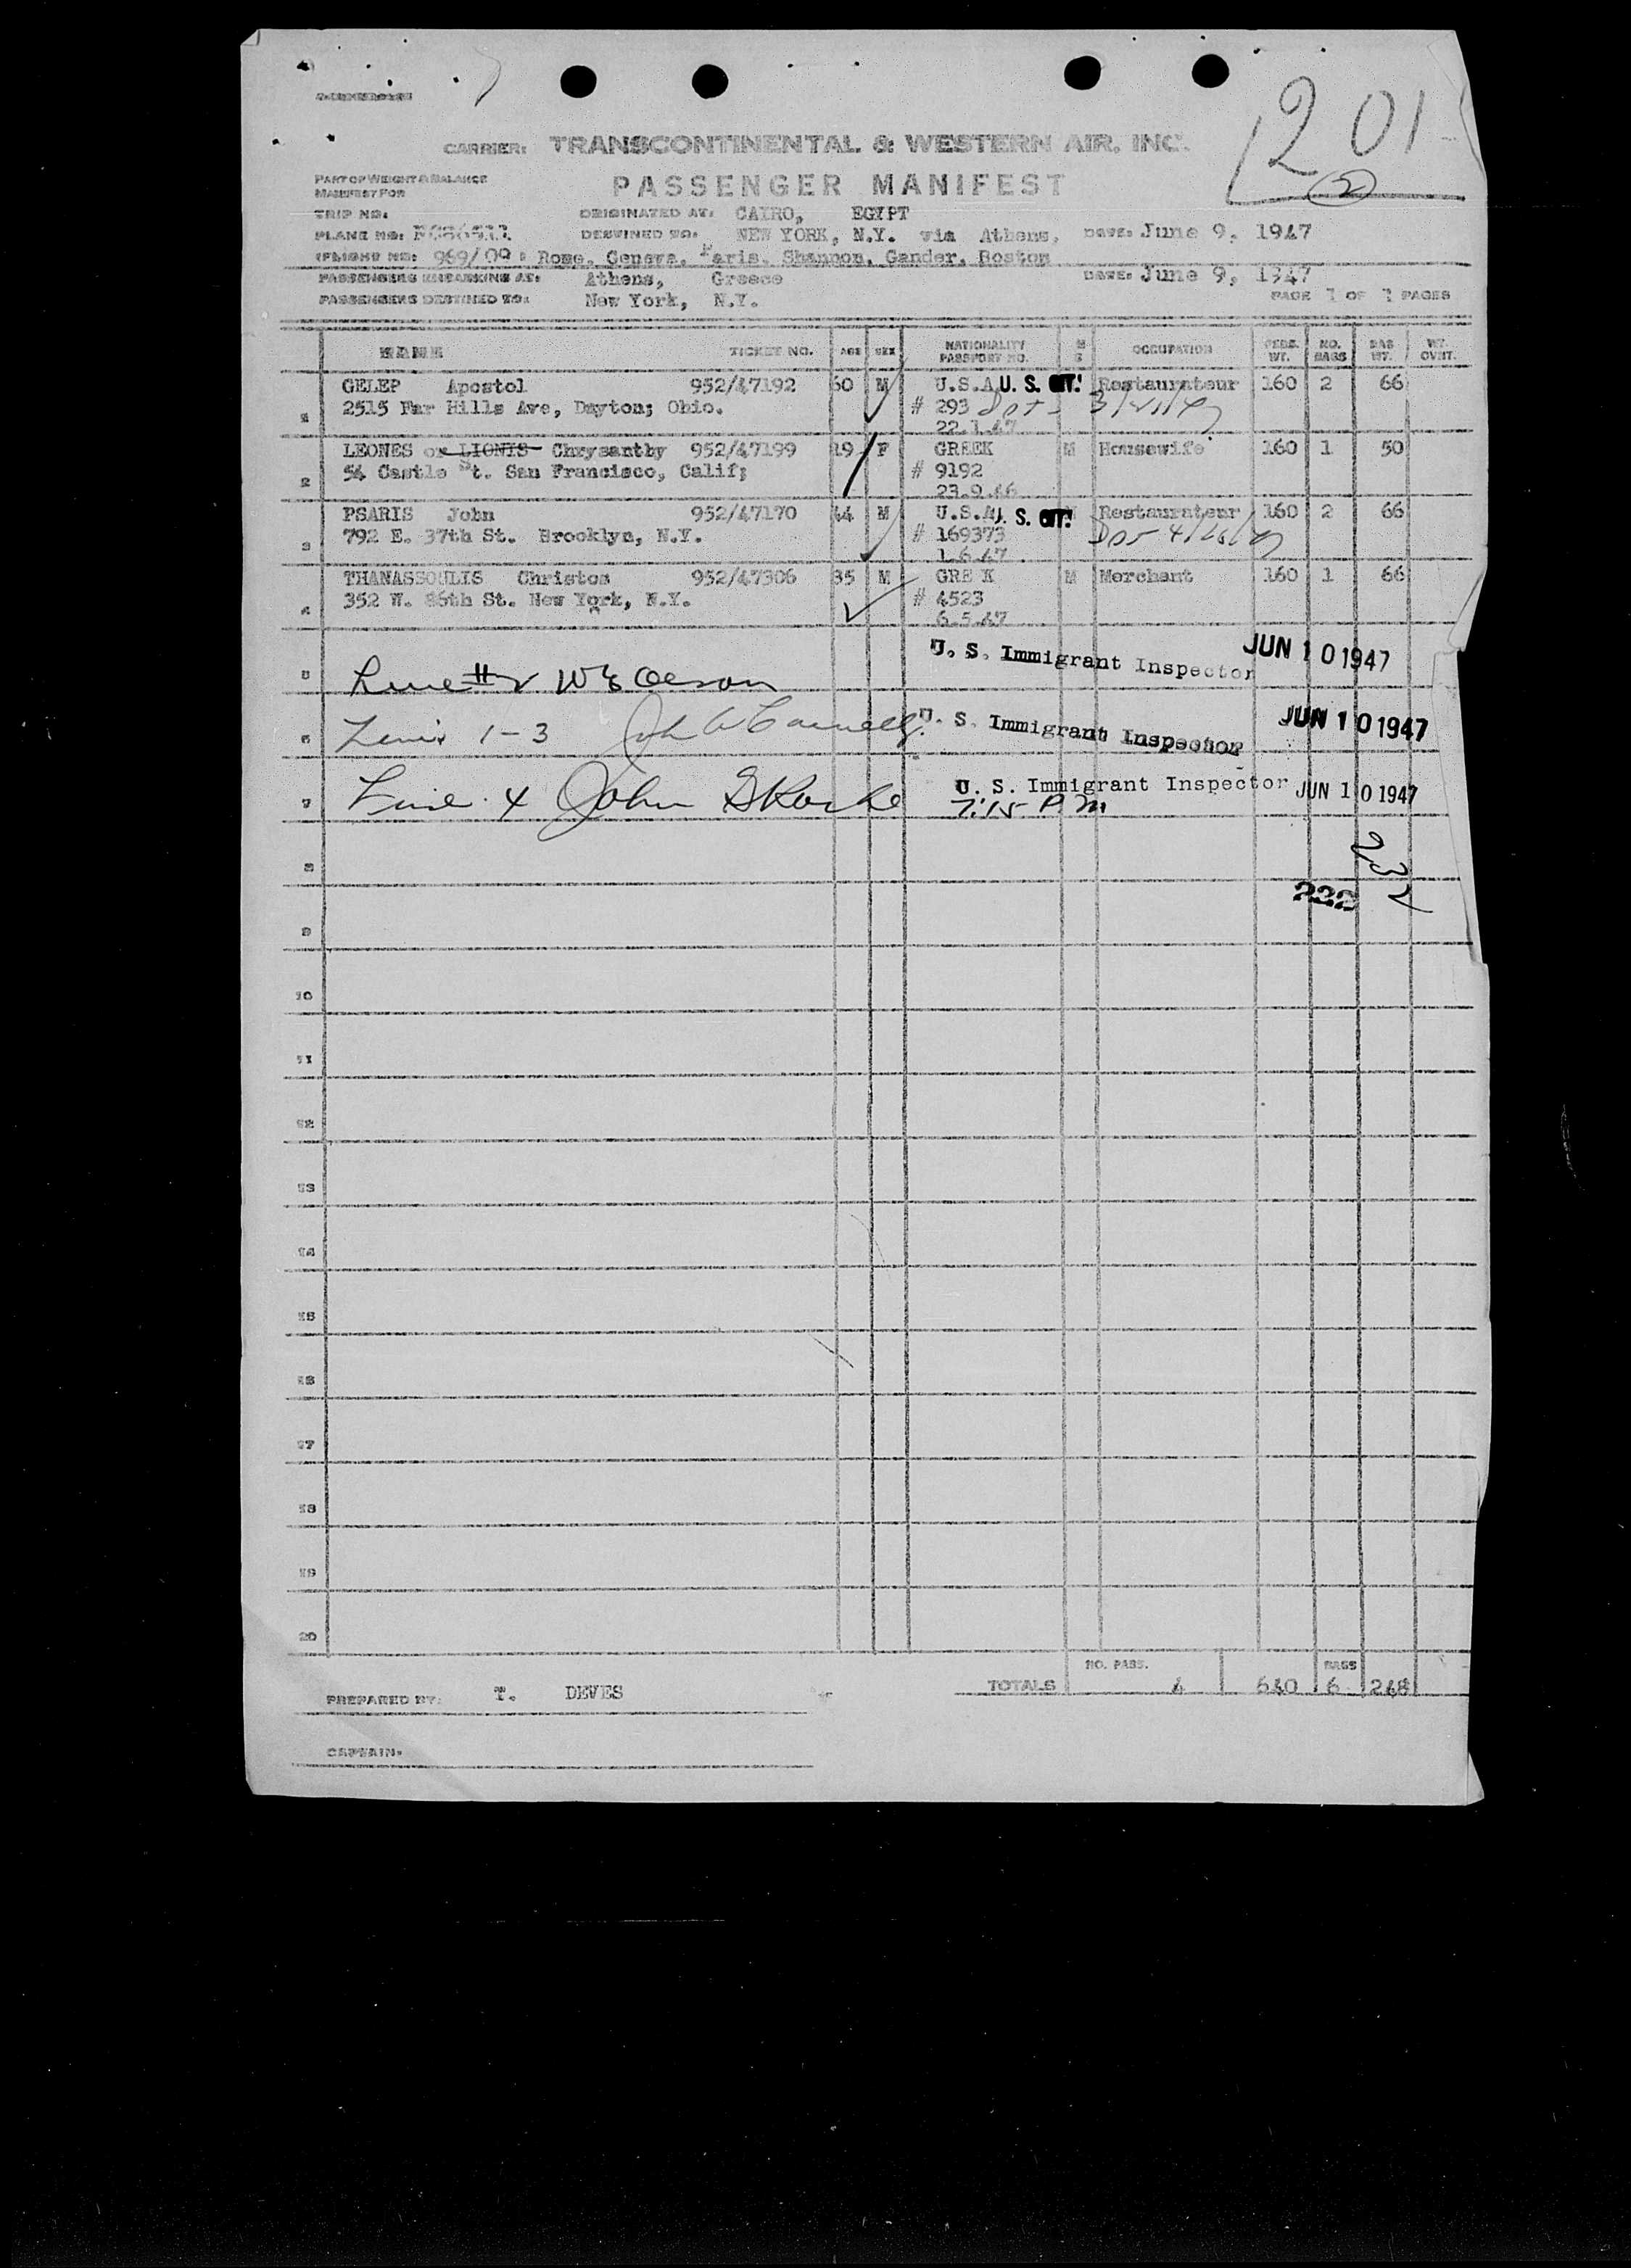 1201
2
CARRIER: TRANSCONTINENTAL & WESTERN AIR. INC.
PASSENGER MANIFEST
PART OF WEIGHT & BALANCE
MANIFEST FOR
TRIP NO: ORIGINATED AT: CAIRO, EGYPT
PLANE NO: DESTINED TO: NEW YORK, N.Y. via Athens, DATE: June 9, 1947
FLIGHT NO: 969/09 : Rome, Geneva, Paris, Shannon, Gander, Boston
PASSENGERS EMBARKING AT: Athens, Greece DATE: June 9, 1947
PASSENGERS DESTINED TO: New York, N.Y. PAGE 1 OF 1 PAGES
NAME TICKET NO. AGE SEX NATIONALITY PASSPORT NO. M S OCCUPATION PERS. WT. NO. BAGS BAG WT. WT. CVNT.
GELEP Apostol 952/47192 60 M U.S.A U. S. CIT. Restaurateur 160 2 66
1 2515 Far Hills Ave, Dayton; Ohio. # 293
22.1.47
LEONES or LIONIS Chrysanthy 952/47199 19 F GREEK M Housewife 160 1 50
2 54 Castle St. San Francisco, Calif; # 9192
23.9.46
PSARIS John 952/47170 44 M U.S.A U. S. CIT. M Restaurateur 160 2 66
3 792 E. 37th St. Brooklyn, N.Y. # 169373
1.6.47
THANASSOULIS Christos 952/47306 35 M GRE K M Merchant 160 1 66
4 352 W. 86th St. New York, N.Y. # 4523
6.5.47
5 Line #2 W E Oleson U. S. Immigrant Inspector JUN 10 1947
6 Lines 1-3 U. S. Immigrant Inspector JUN 10 1947
7 Line 4 John U. S. Immigrant Inspector JUN 10 1947
7:15 P M
232
8
222
9
10
11
12
13
14
15
16
17
18
19
20
NO. PASS. BAGS
TOTALS 4 640 6 248
PREPARED BY: T. DEVES
CAPTAIN: